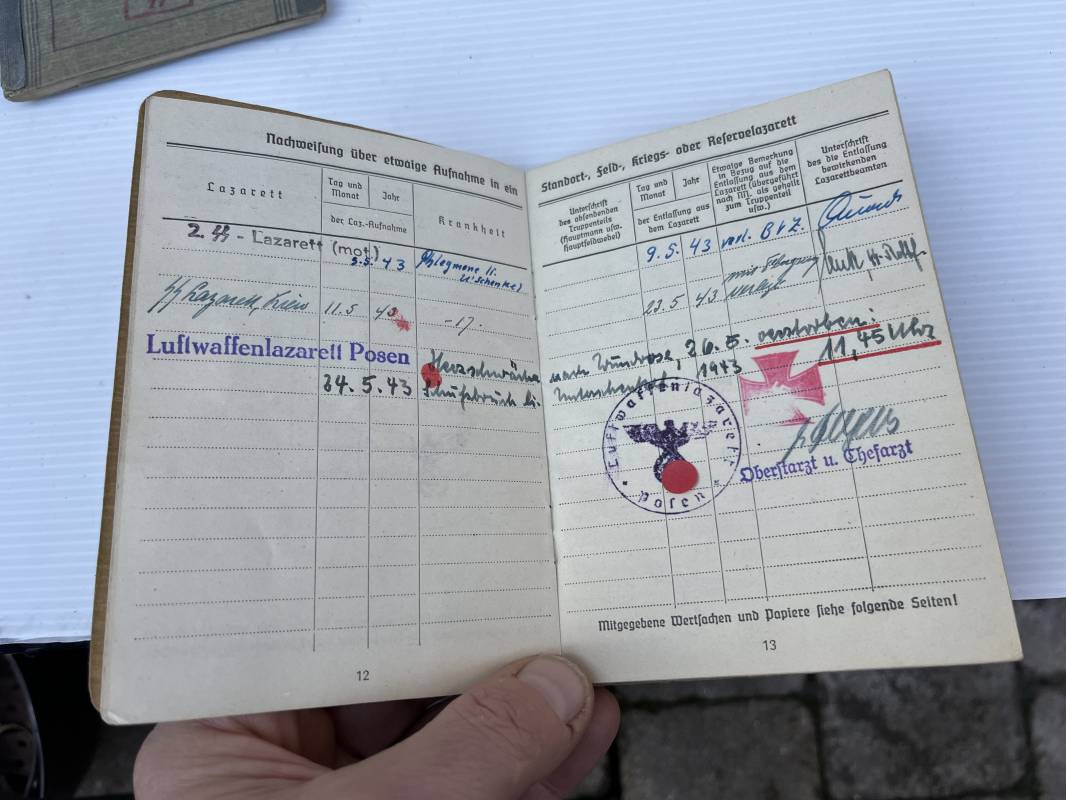 Nachweisung über etwaige Aufnahme in ein
Lazarett
Tag und Monat
Jahr
der Laz.-Aufnahme
Krankheit
2. SS - Lazarett (mot.)
5.5. 43
Phlegmone li.
SS Lazarett, Kiew
11.5 43
-17.
Luftwaffenlazarett Posen
24.5.43
Herzschwäche
Schußbruch li.
12
Standort-, Feld-, Kriegs- oder Reservelazarett
Unterschrift
des absendenden
Truppenteils
(Hauptmann usw.
Hauptfeldwebel)
Tag und Monat
Jahr
der Entlassung aus
dem Lazarett
Etwaige Bemerkung
in Bezug auf die
Entlassung aus dem
Lazarett (übergeführt
nach NN. als geheilt
zum Truppenteil
usw.)
Unterschrift
des die Entlassung
bewirkenden
Lazarettbeamten
9.5. 43 verl.
23.5 43
verlegt
nach Wundrose, 26.5. verstorben:
Unterschenkel 1943 11,45 Uhr
Luftwaffenlazarett
Posen
Oberstarzt u. Chefarzt
Mitgegebene Wertsachen und Papiere siehe folgende Seiten!
13